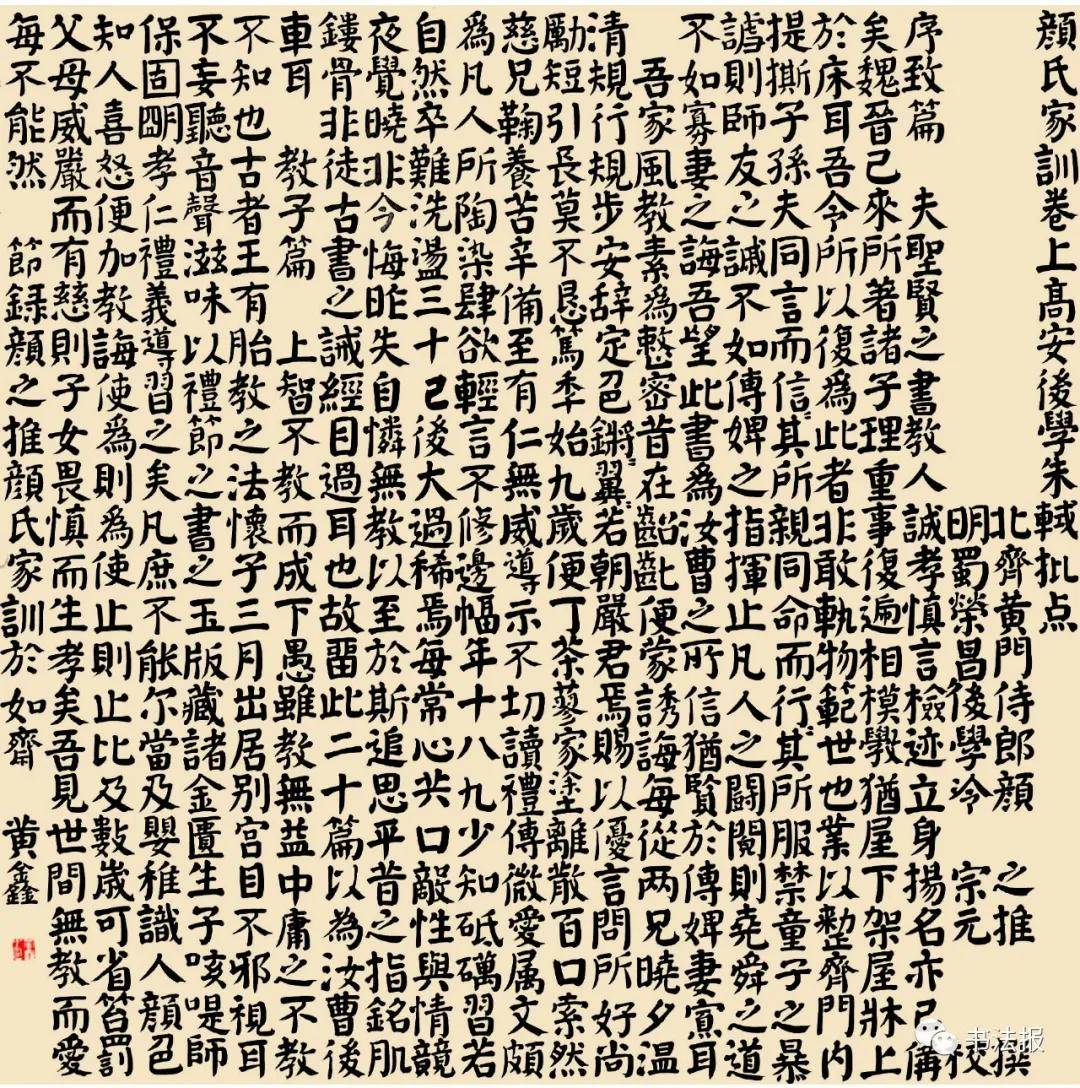 顔氏家訓巻上高安後學朱軾批点
北齊黄門侍郎顔 之推 撰
明蜀榮昌後學泠 宗元 校
序致篇 夫聖賢之書教人誠孝慎言檢迹立身揚名亦已備
矣魏晉已來所著諸子理重事復遍相模斅猶屋下架屋牀上
於床耳吾今所以復爲此者非敢軌物範世也業以整齊門内
提撕子孫夫同言而信〻其所親同命而行〻其所服禁童子之暴
謔則師友之誡不如傅婢之指揮止凡人之鬭鬩則堯舜之道
不如寡妻之誨吾望此書爲汝曹之所信猶賢於傅婢妻寡耳
吾家風教素爲整密昔在齠齔便蒙誘誨每從两兄曉夕温
清規行規步安辞定色鏘〻翼〻若朝嚴君焉賜以優言問所好尚
勵短引長莫不恳篤年始九歲便丁荼蓼家塗離散百口索然
慈兄鞠養苦辛備至有仁無威導示不切讀禮傳微愛属文頗
爲凡人所陶染肆欲輕言不修邊幅年十八九少知砥礪習若
自然卒難洗盪三十已後大過稀焉每常心共口敵性與情競
夜覺曉非今悔昨失自憐無教以至於斯追思平昔之指銘肌
鏤骨非徒古書之誡經目過耳也故畱此二十篇以為汝曹後
車耳 教子篇 上智不教而成下愚雖教無益中庸之不教
不知也古者王有胎教之法懷子三月出居别宫目不邪視耳
不妄聽音聲滋味以禮節之書之玉版藏諸金匱生子咳㖷師
保固明孝仁禮義導習之矣凡庶不能尔當及嬰稚識人顔色
知人喜怒便加教誨使爲則爲使止則止比及數歲可省笞罰
父母威嚴而有慈則子女畏慎而生孝矣吾見世間無教而愛
每不能然 節録顔之推顔氏家訓於如齊 黄鑫
书法报